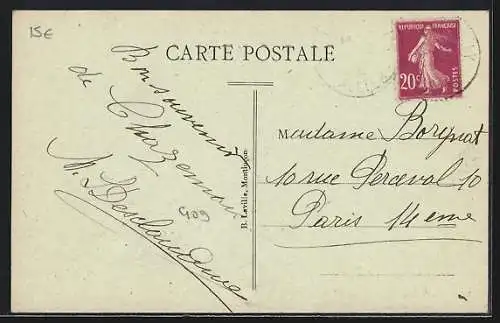 15€
CARTE POSTALE
REPUBLIQUE FRANÇAISE
20c
POSTES
Bon souvenir
de Chazemais
409
M. Deschaudume
B. Laville, Montluçon
Madame
10 rue Perceval 10
Paris 14eme